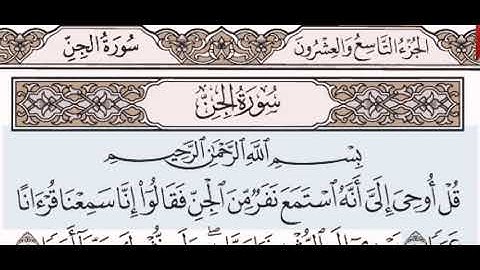 الجزء التاسع والعشرون
سورة الجن
سُورَةُ الجِنِّ
بِسْمِ ٱللَّهِ ٱلرَّحْمَٰنِ ٱلرَّحِيمِ
قُلْ أُوحِىَ إِلَىَّ أَنَّهُ ٱسْتَمَعَ نَفَرٌ مِّنَ ٱلْجِنِّ فَقَالُوٓا۟ إِنَّا سَمِعْنَا قُرْءَانًا